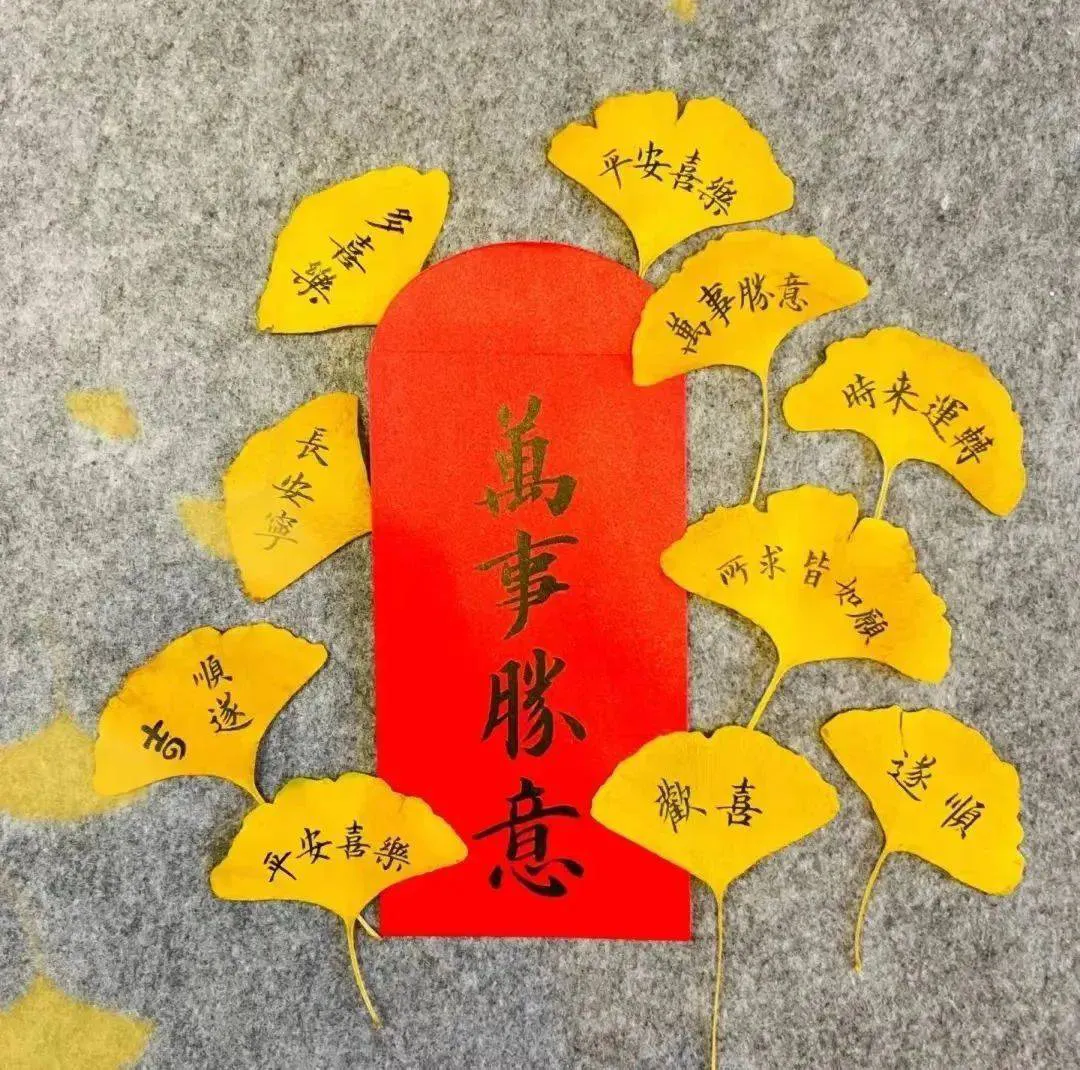 平安喜樂
多喜樂
萬事勝意
時来運轉
萬事勝意
長安寧
所求皆如願
順遂
平安喜樂
歡喜
遂順